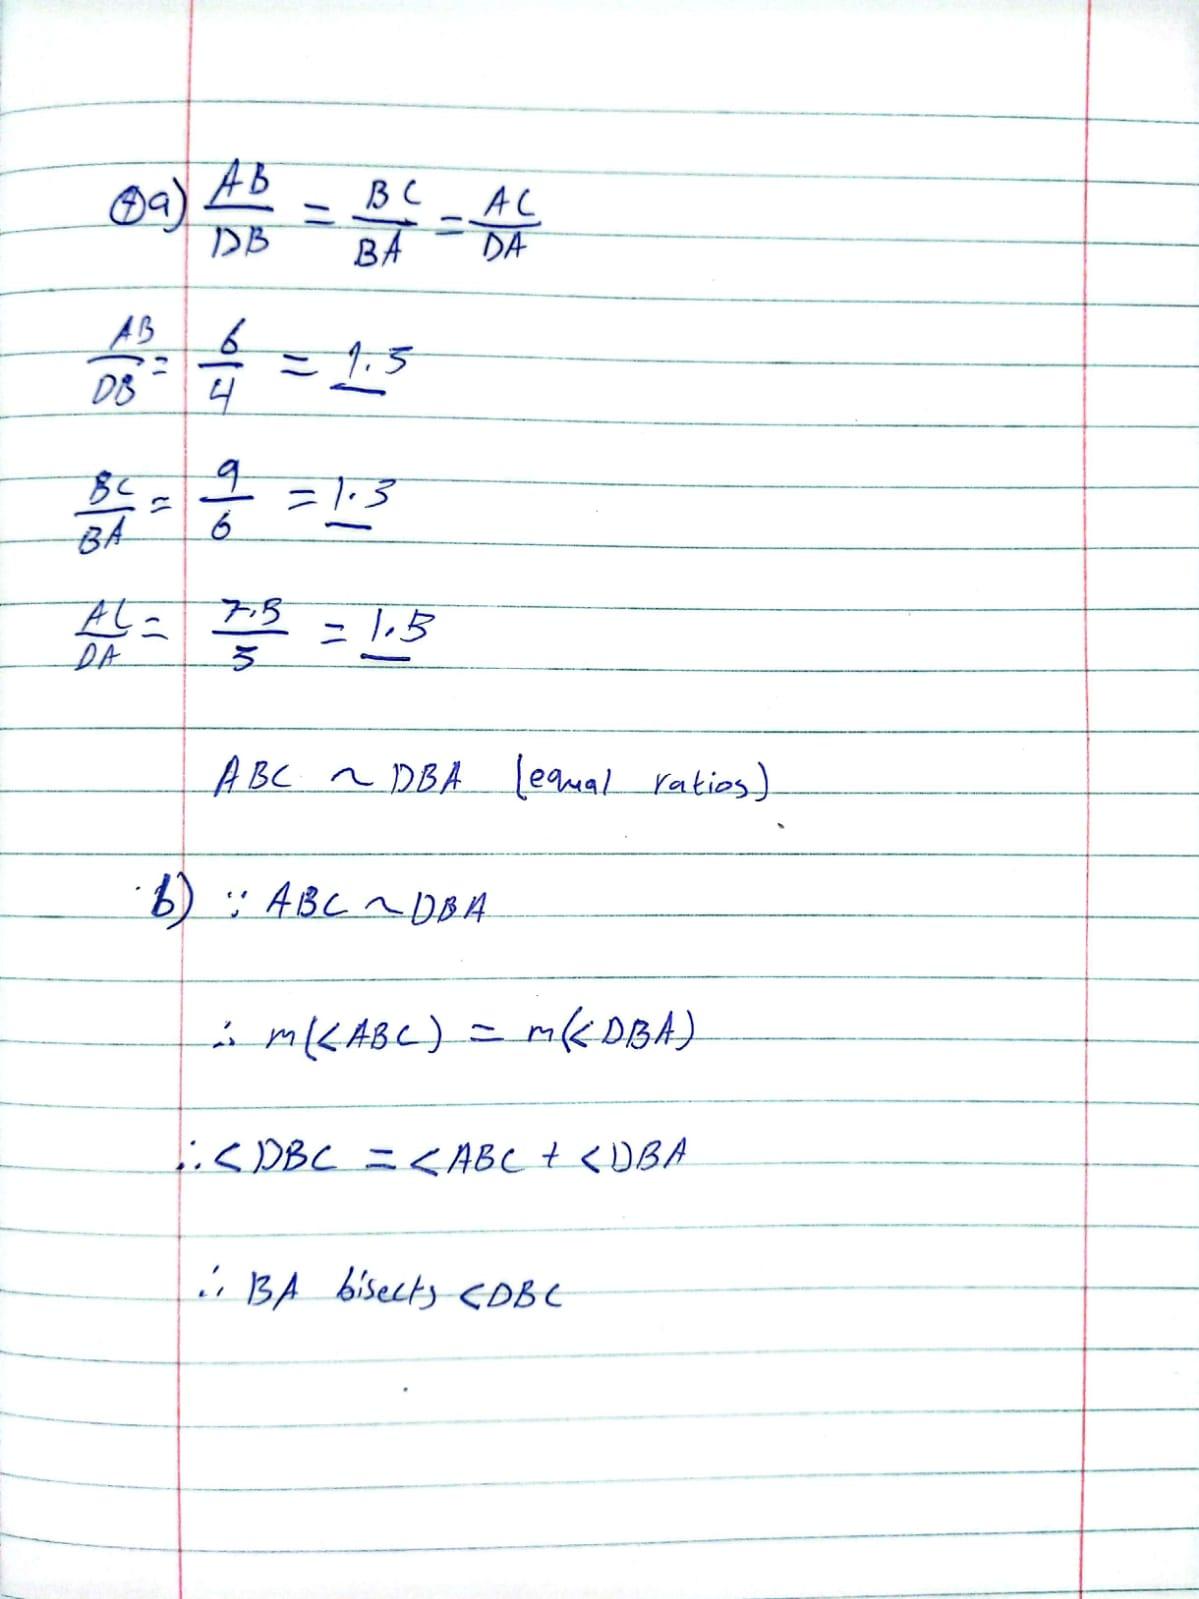 ④a) AB/DB = BC/BA = AC/DA
AB/DB = 6/4 = 1.5
BC/BA = 9/6 = 1.5
AC/DA = 7.5/5 = 1.5
ABC ~ DBA (equal ratios)
b) ∵ ABC ~ DBA
∴ m(<ABC) = m(<DBA)
∴ <DBC = <ABC + <DBA
∴ BA bisects <DBC